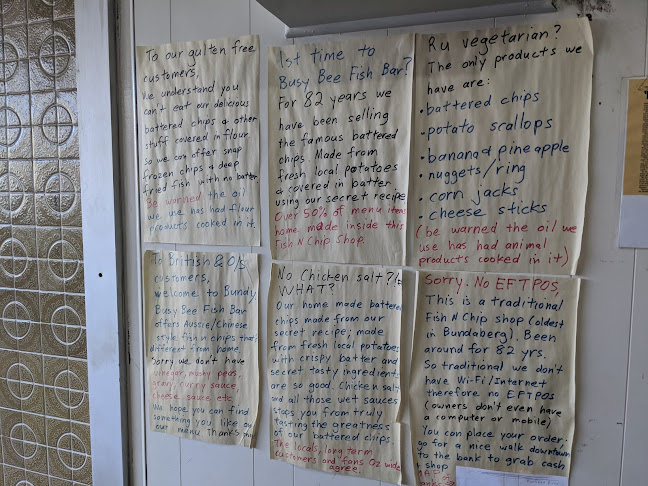 To our gulten free
customers,
We understand you
can't eat our delicious
battered chips & other
stuff covered in flour
so we can offer snap
frozen chips & deep
fried fish with no batter.
Be warned the oil
we use has had flour
products cooked in it.
1st time to
Busy Bee Fish Bar?
For 82 years we
have been selling
the famous battered
chips. Made from
fresh local potatoes
& covered in batter
using our secret recipe
Over 50% of menu items
home made inside this
Fish N Chip Shop.
R u vegetarian?
The only products we
have are:
• battered chips
• potato scallops
• banana & pineapple
• nuggets/ring
• corn jacks
• cheese sticks
(be warned the oil we
use has had animal
products cooked in it)
To British & O/S
customers,
welcome to Bundy.
Busy Bee Fish Bar
offers Aussie/Chinese
style fish n chips that
different from home.
Sorry we don't have
vinegar, mushy peas,
gravy, curry sauce,
cheese sauce etc
We hope you can find
something you like on
our menu Thanks
No Chicken salt?!
WHAT?
Our home made battered
chips made from our
secret recipe; made
from fresh local potatoes
with crispy batter and
secret tasty ingredients
are so good. Chicken salt
and all those wet sauces
stops you from truly
tasting the greatness
of our battered chips.
The locals, long term
customers and fans Oz wide
agree.
Sorry. No EFTPOS,
This is a traditional
Fish N Chip shop (oldest
in Bundaberg). Been
around for 82 yrs.
So traditional we don't
have Wi-Fi/Internet
therefore no EFTPOS
(owners don't even have
a computer or mobile)
You can place your order:
go for a nice walk downtown
to the bank to grab cash
& shop